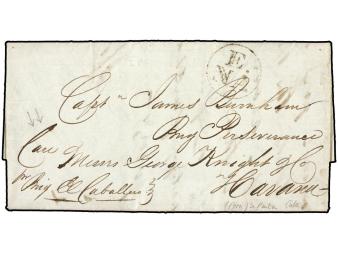 Capt n James Burnham
Brig Perseverance
Care Messrs George Knight & Co
Havana
pr Brig El Caballero